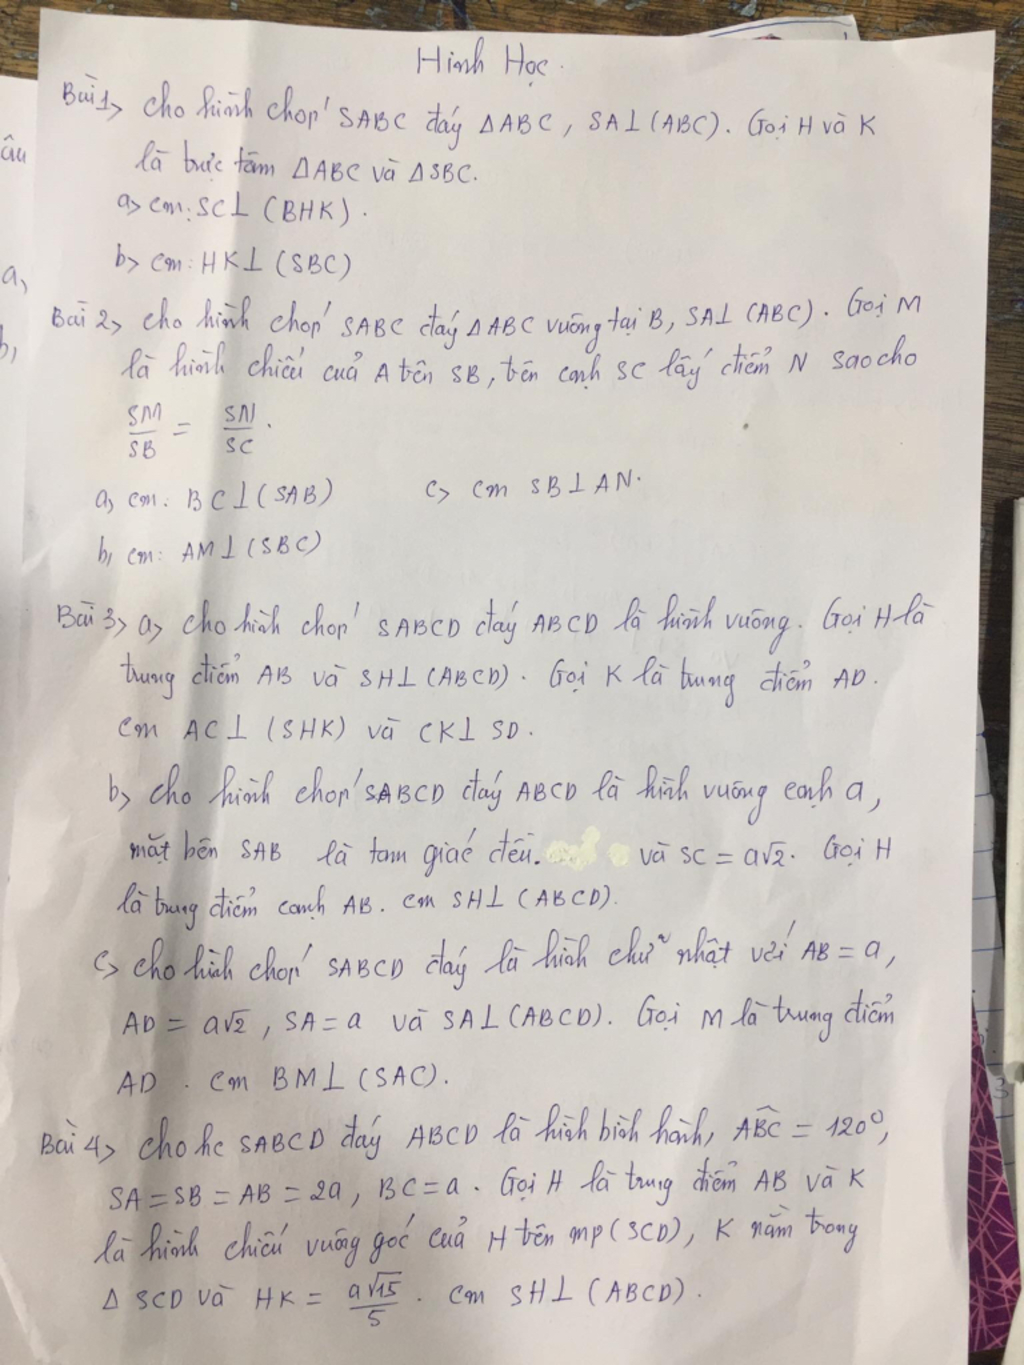 Hình Học.
Bài 1> Cho hình chóp SABC đáy ΔABC, SA⊥(ABC). Gọi H và K
là trực tâm ΔABC và ΔSBC.
a> cm: SC⊥(BHK).
b> cm: HK⊥(SBC)
Bài 2> Cho hình chóp SABC đáy ΔABC vuông tại B, SA⊥(ABC). Gọi M
là hình chiếu của A trên SB, trên cạnh SC lấy điểm N sao cho
SM/SB = SN/SC.
a, cm: BC⊥(SAB) c> cm SB⊥AN.
b, cm: AM⊥(SBC)
Bài 3> a> Cho hình chóp SABCD đáy ABCD là hình vuông. Gọi H là
trung điểm AB và SH⊥(ABCD). Gọi K là trung điểm AD.
cm AC⊥(SHK) và CK⊥SD.
b> Cho hình chóp SABCD đáy ABCD là hình vuông cạnh a,
mặt bên SAB là tam giác đều. và SC = a√2. Gọi H
là trung điểm cạnh AB. cm SH⊥(ABCD).
c> Cho hình chóp SABCD đáy là hình chữ nhật với AB = a,
AD = a√2, SA = a và SA⊥(ABCD). Gọi M là trung điểm
AD. cm BM⊥(SAC).
Bài 4> Cho hc SABCD đáy ABCD là hình bình hành, ABC = 120°,
SA = SB = AB = 2a, BC = a. Gọi H là trung điểm AB và K
là hình chiếu vuông góc của H trên mp(SCD), K nằm trong
Δ SCD và HK = a√15/5. cm SH⊥(ABCD).
âu
a,
b,